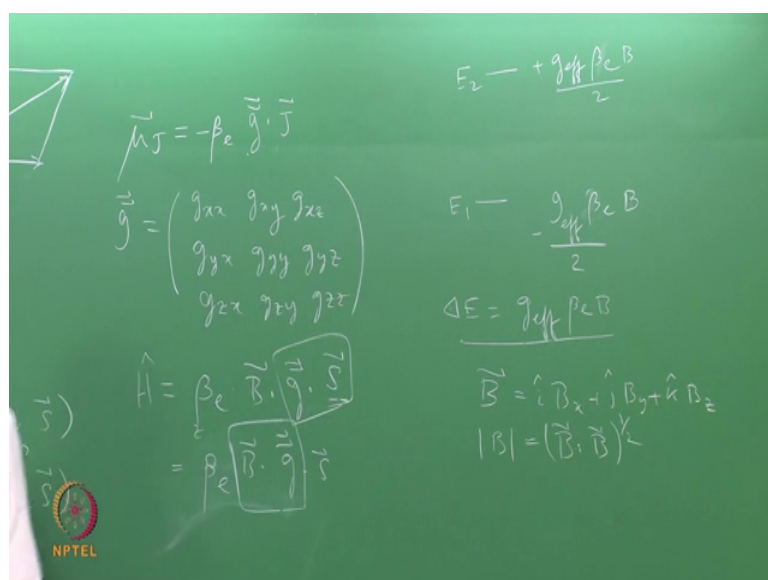 μ⃗_J = -β_e g⃗⃗ · J⃗
g⃗⃗ = ( g_xx g_xy g_xz
g_yx g_yy g_yz
g_zx g_zy g_zz )
Ĥ = β_e B⃗ · g⃗⃗ · S⃗
= β_e B⃗ · g⃗⃗ · S⃗
S⃗)
S⃗)
E₂ — + g_eff β_e B / 2
E₁ — - g_eff β_e B / 2
ΔE = g_eff β_e B
B⃗ = î B_x + ĵ B_y + k̂ B_z
|B| = (B⃗ · B⃗)^½
NPTEL